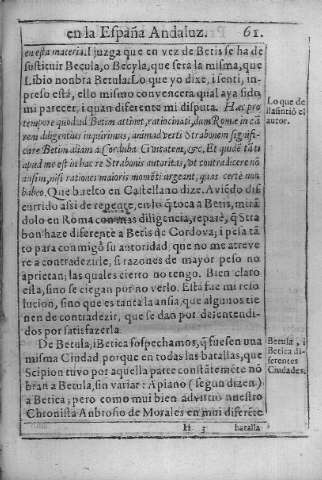 en la España Andaluz. 61.
en esta materia. I juzga que en vez de Betis se ha de
sustituir Becula, o Becyla, que será la misma, que
Libio nonbra Betula. Lo que yo dixe, i senti, in-
preso está, ello mismo convencera qual aya sido
mi parecer, i quan diferente mi disputa. Hac pro
tempore quod ad Betim attinet, ratiocinati, dum Romæ in ea
rem diligentius inquirimus, animadverti Strabonem significare
Betim aliam a Corduba Civitatem, &c. Et quidē tāti
apud me est in hac re Strabonis autoritas, ut contradicere nō
ausim, nisi rationes maioris momēti urgeant, quas certè non
habeo. Que buelto en Castellano dize. Aviēdo dis-
currido assi de repente, en lo q̃ toca a Betis, mirā
dolo en Roma con mas diligencia, reparè, q̃ Stra
bon haze diferente a Betis de Cordova; i pesa tā
to para con migo su autoridad, que no me atreve
re a contradezirle, si razones de mayor peso no
aprietan; las quales cierto no tengo. Bien claro
esta, sino se ciegan por no verlo. Esta fue mi reso
lucion, sino que es tanta la ansia, que algunos tie
nen de contradezir, que se dan por desentendi-
dos por satisfazerla.
De Betula, i Betica sospechamos, q̃ fuesen una
misma Ciudad porque en todas las batallas, que
Scipion tuvo por aquella parte constātemēte nō
bran a Betula, sin variar: Apiano (segun dizen)
a Betica; pero como mui bien advirtiò nuestro
Chronista Anbrosio de Morales en mui diferēte
H 3 batalla
Lo que de
ella sintió el
autor.
Betula, i
Betica di-
ferentes
Ciudades.